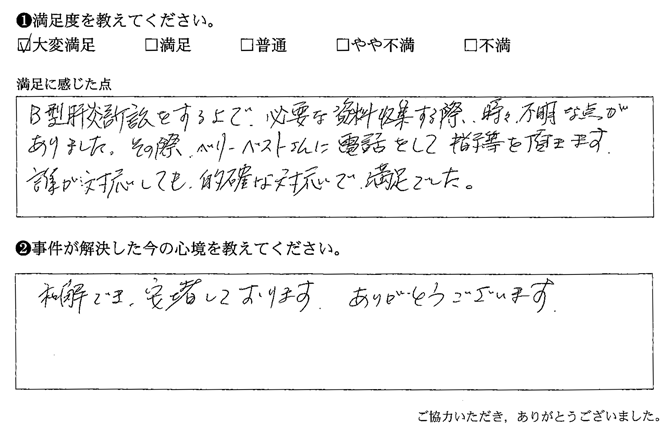 ❶満足度を教えてください。
☑大変満足 □満足 □普通 □やや不満 □不満
満足に感じた点
B型肝炎訴訟をする上で、必要な資料収集する際、時々不明な点が
ありました。その際、ベリーベストさんに電話をして指示等を頂きます。
誰が対応しても、的確な対応で、満足でした。
❷事件が解決した今の心境を教えてください。
和解でき、安堵しております。ありがとうございます。
ご協力いただき，ありがとうございました。